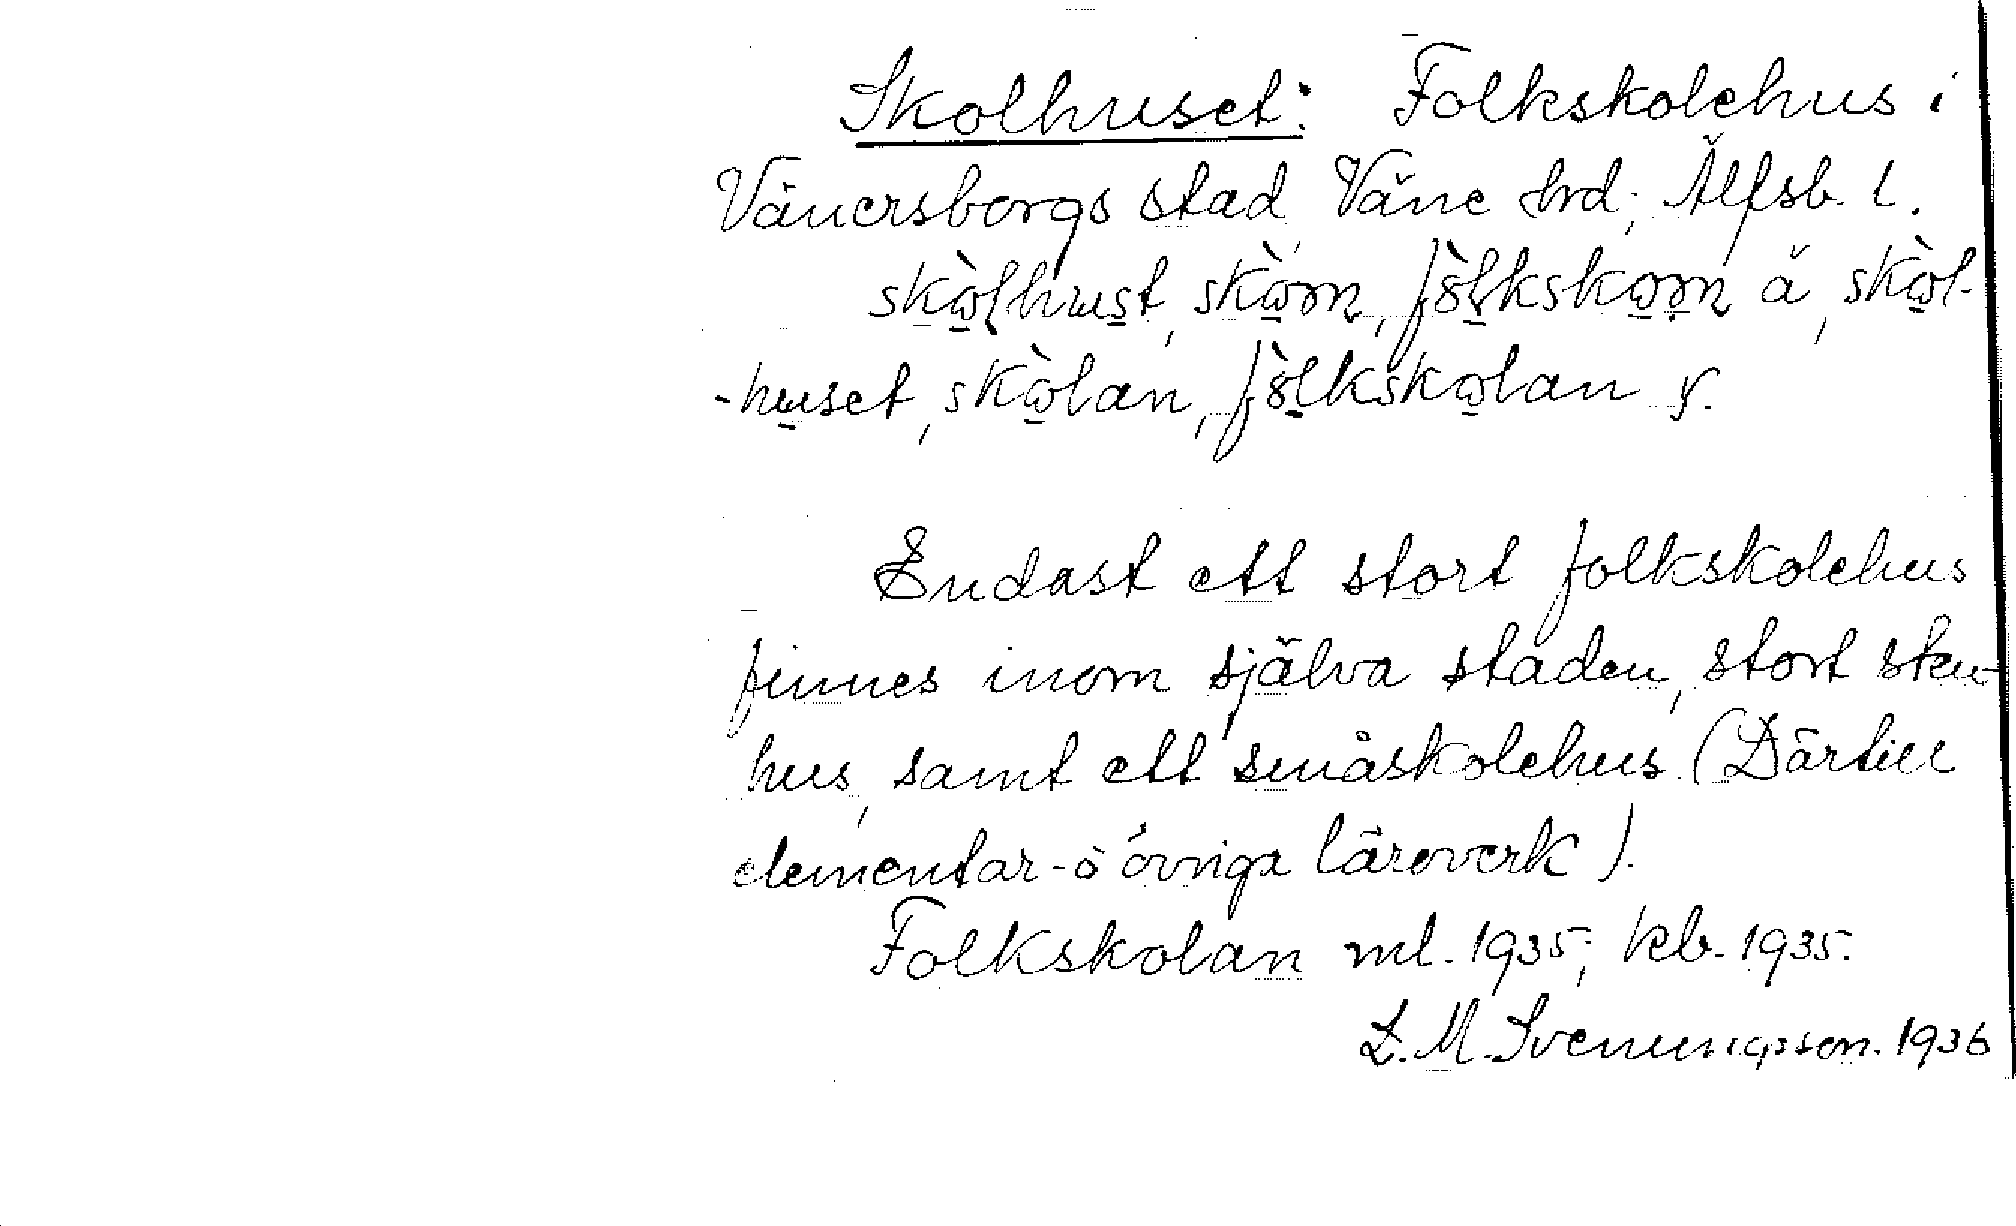 Skolhuset: Folkskolehus i
Vänersborgs stad, Väne hrd, Älfsb. l.
skòlhust, skòm, fòlkskom ä, skòl-
-huset, skòlan, fòlkskolan y.
Endast ett stort folkskolehus
finnes inom själva staden, stort sten-
hus, samt ett småskolehus. (Därtill
elementar- o övriga läroverk).
Folkskolan ml. 1935; kb. 1935.
L. M. Svenungsson. 1936